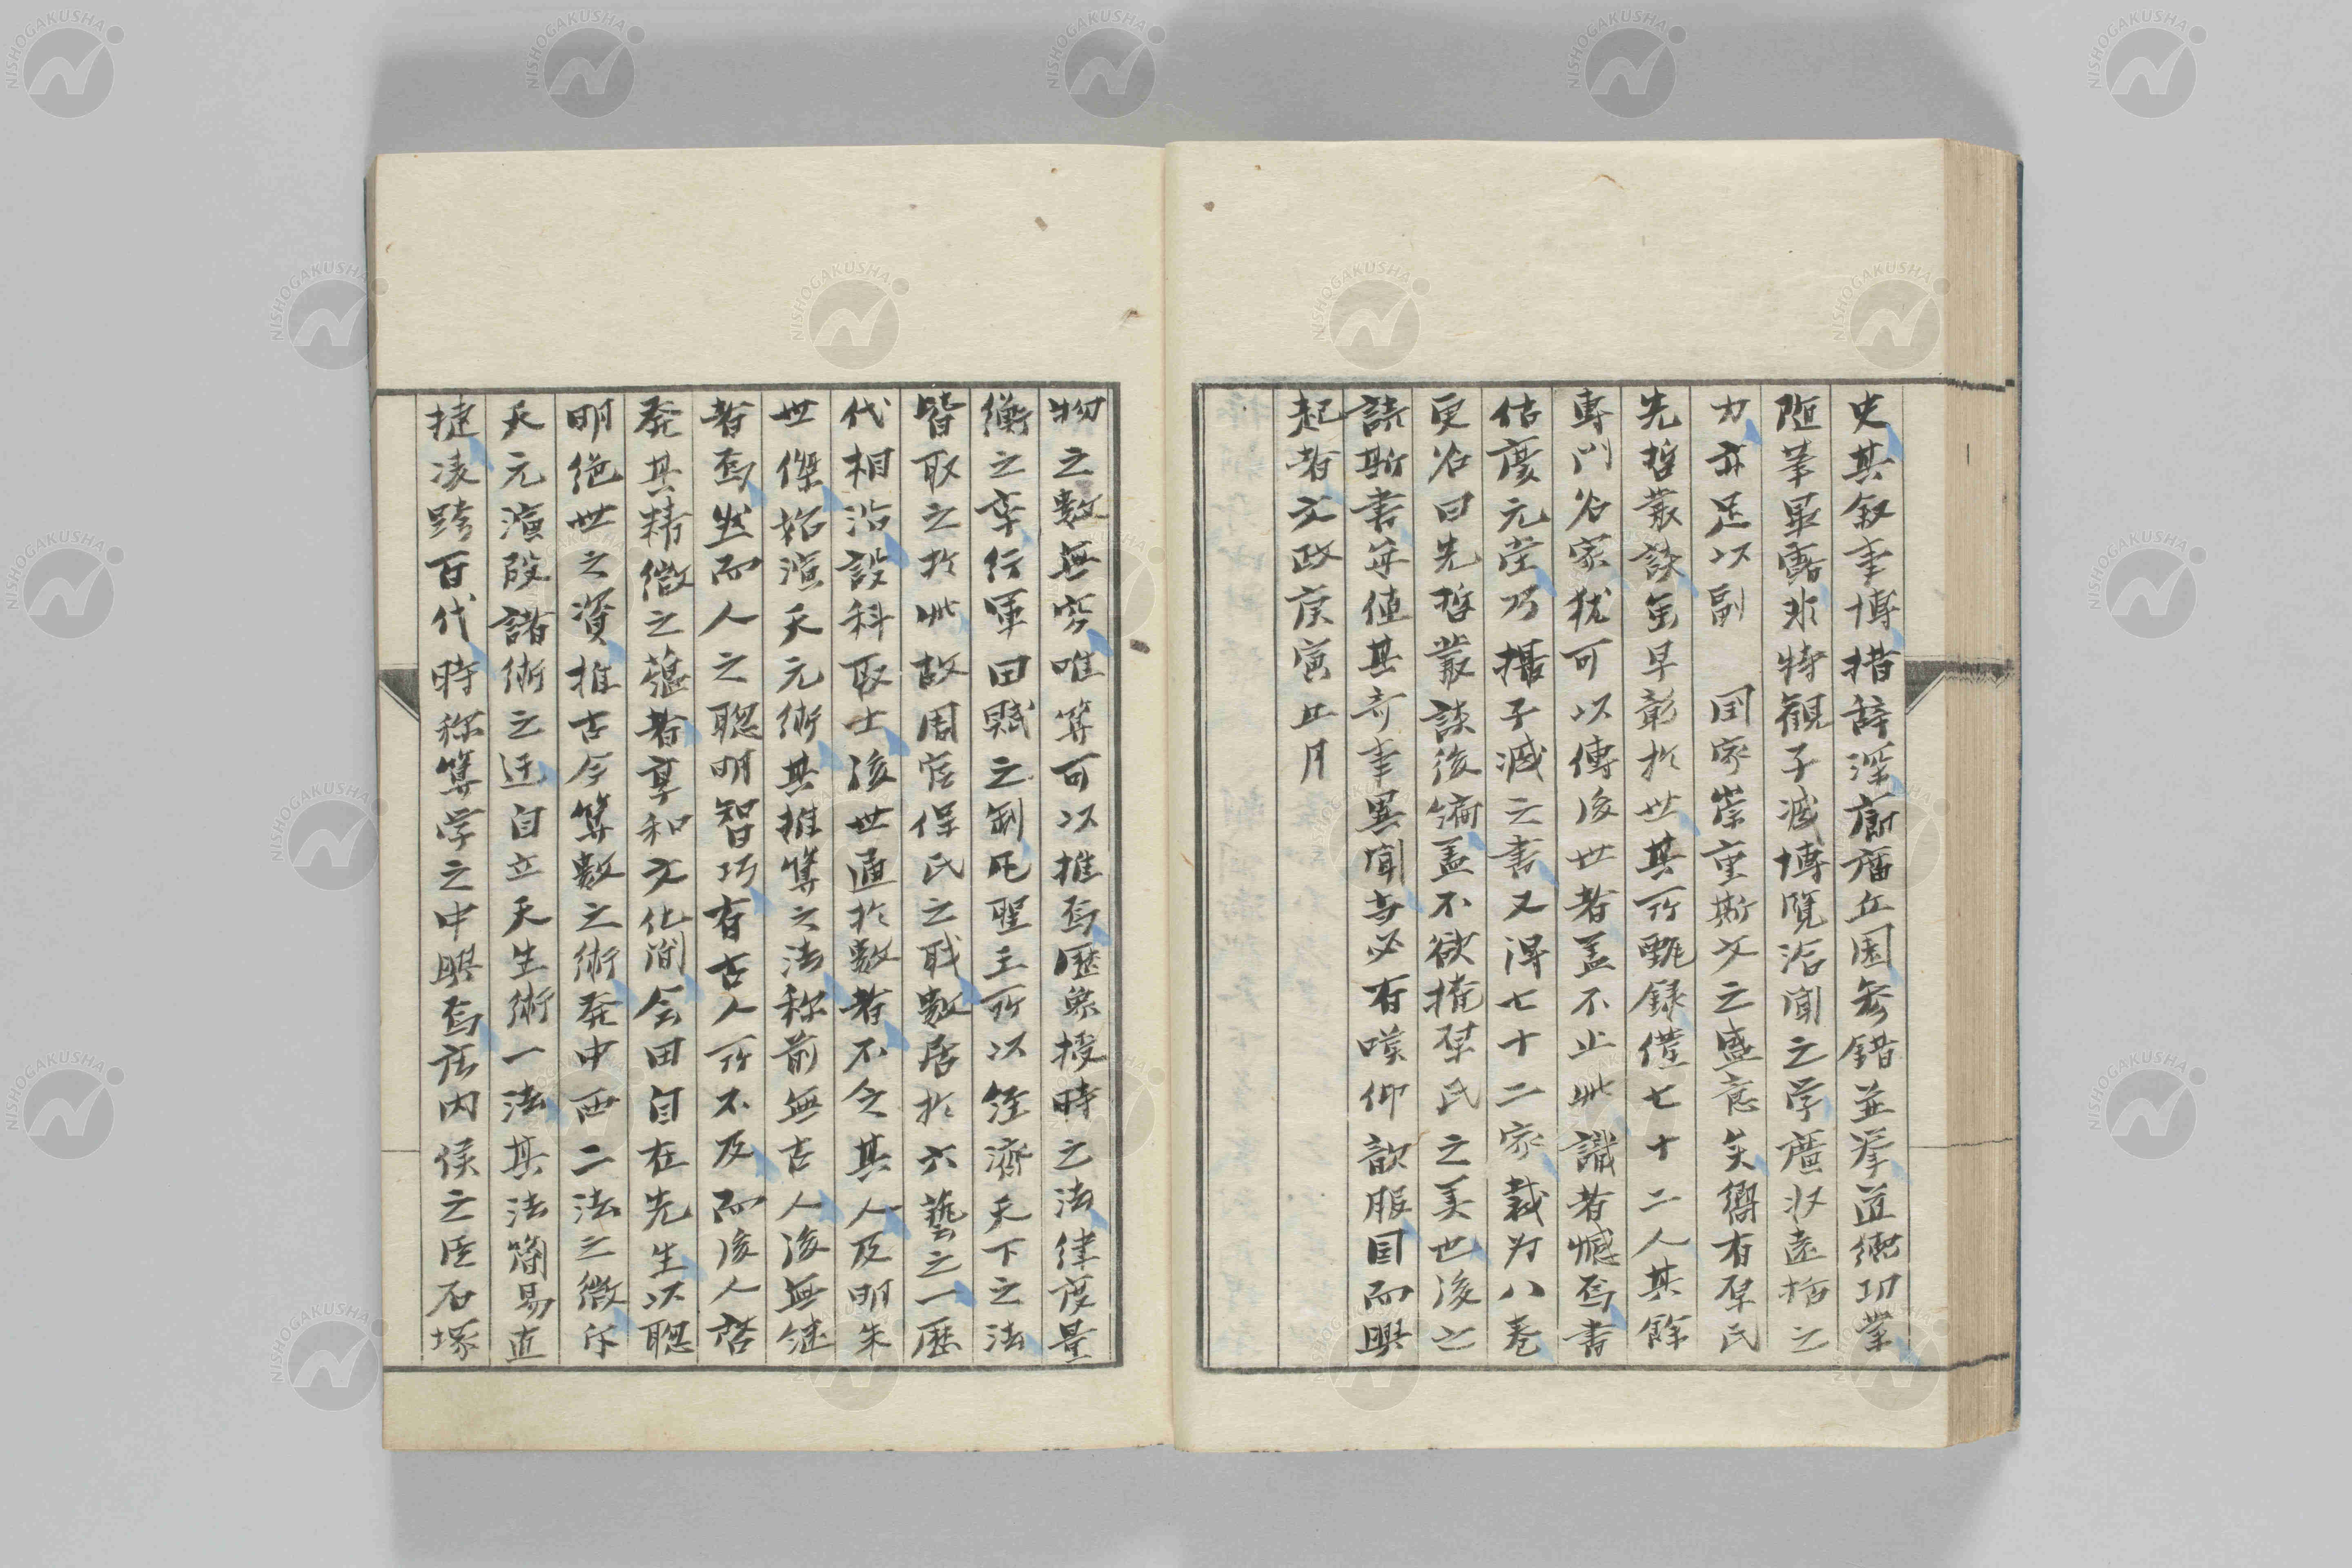 史其叙事博措辞深蔚播丘園参錯並挙道徳功業
隠華畢露非特観子浅博覧洽聞之学廣収遠括之
力亦足以副 国家崇重斯文之盛意矣嚮有原氏
先哲叢談氏早彰於世其所甄録僅七十二人其餘
専門名家猶可以傳後世者蓋不止此識者憾焉書
估慶元堂乃攜子減之書又得七十二家裁为八巻
更名曰先哲叢談後編蓋不欲掩原氏之美也後之
読斯書每値其奇事異聞寺必有嘆仰歆服因而興
起者文政庚寅五月
物之數無窮唯筭可以推焉歴象授時之法律度量
衡之率行軍田賦之制凡聖主所以經濟天下之法
皆取之於此故周官保氏之職數居於六藝之一歴
代相沿設科取士後世通於數者不乏其人及明朱
世傑拓演天元術其推筭之法称前無古人後無継
者焉然而人之聡明智巧有古人所不及而後人啓
発其精微之蘊者享和文化間会田自在先生以聡
明絶世之資推古今筭數之術発中西二法之微斥
天元演段諸術之迂自立天生術一法其法簡易直
捷凌跨百代時称筭学之中興焉庄内侯之臣石塚
NISHOGAKUSHA